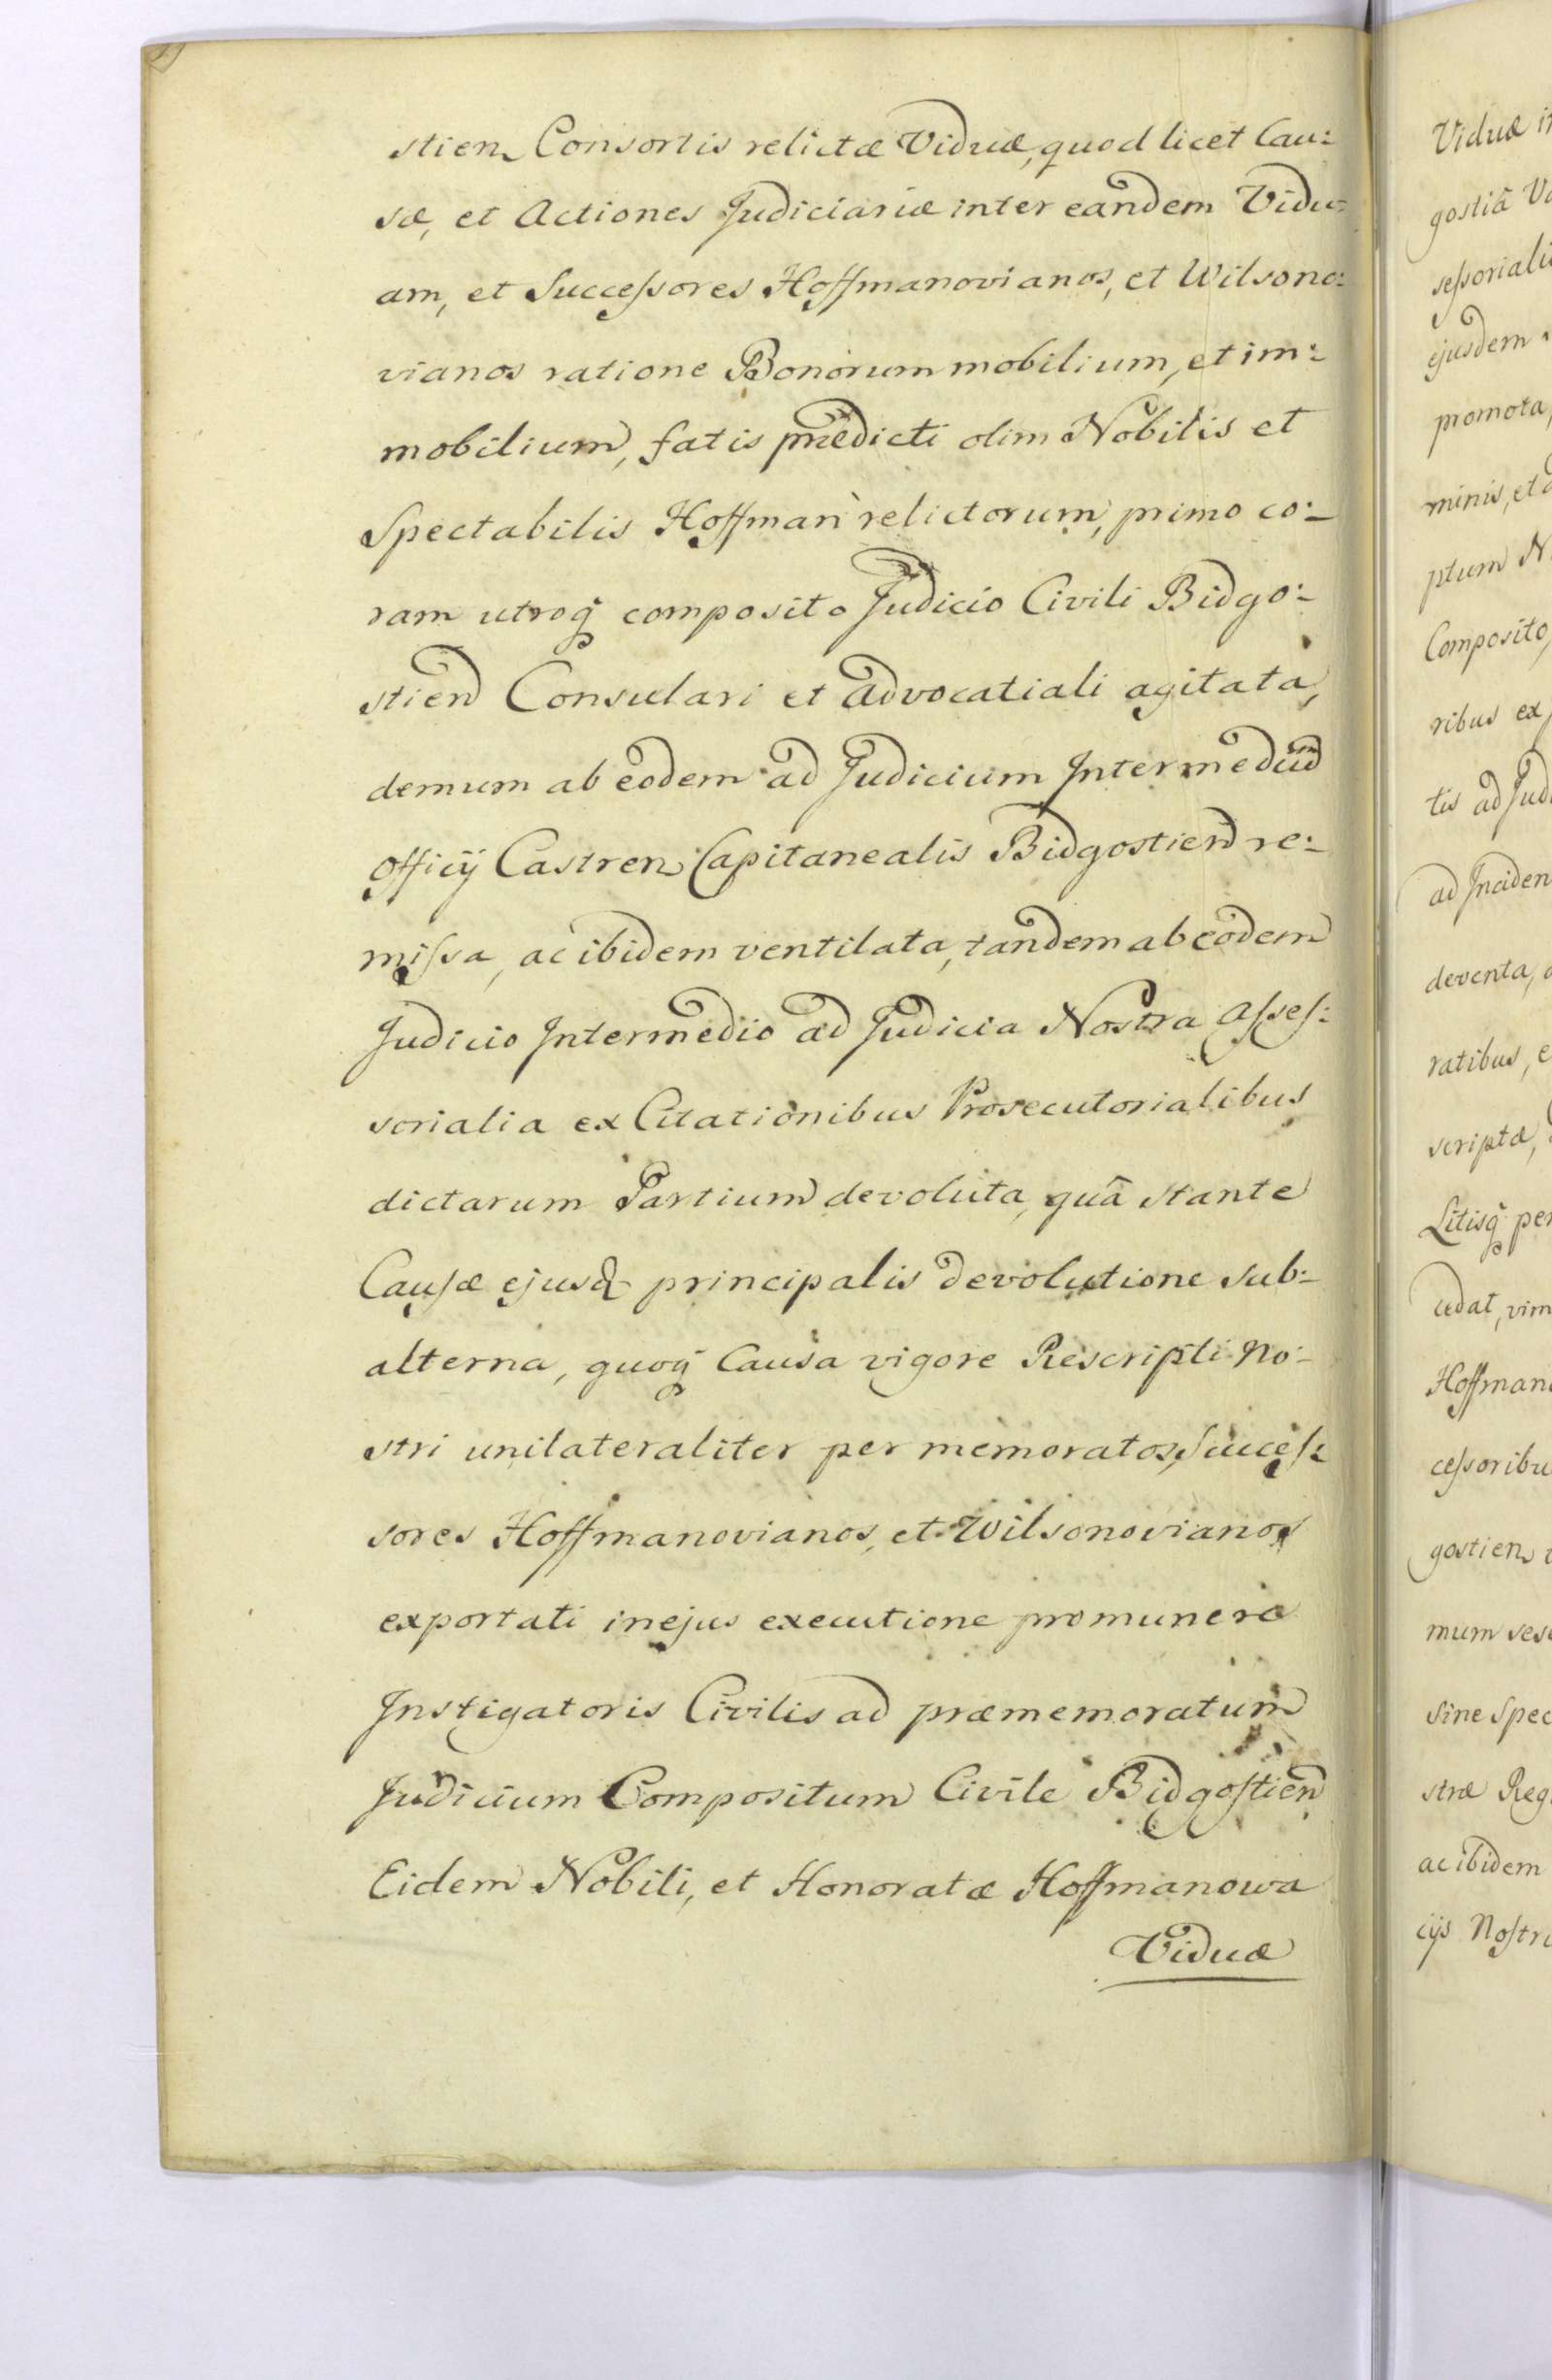 stien Consortis relictæ Viduæ, quod licet Cau:
sæ, et Actiones Judiciariæ inter eandem Vidu:
am, et Succeſsores Hoffmanovianos, et Wilsono:
vianos ratione Bonorum mobilium, et im:
mobilium, fatis prædicti olim Nobilis et
Spectabilis Hoffman relictorum, primo co:
ram utroq composito Judicio Civili Bidgo:
stien Consulari et Advocatiali agitata,
demum ab eodem ad Judicium Intermediū
Officij Castren Capitanealis Bidgostien re:
miſsa, ac ibidem ventilata, tandem ab eodem
Judicio Intermedio ad Judicia Nostra Aſseſ:
sorialia ex Citationibus Prosecutorialibus
dictarum Partium devoluta, quâ stante
Cauſæ ejusd principalis devolutione sub:
alterna, quoq Causa vigore Rescripti No:
stri unilateraliter per memoratos, Succeſ:
sores Hoffmanovianos, et Wilsonovianos
exportati in ejus executione pro munere
Instigatoris Civilis ad præmemoratum
Judicium Compositum Civile Bidgoſtien
Eidem Nobili, et Honoratæ Hoffmanowa
Viduæ
Viduæ
gostiâ
seſsoriali
ejusdem
promota,
minis, et
ptum N
Composito,
ribus ex
tis ad Jud
ad Inciden
deventa,
ratibus, e
scriptæ,
Litisq per
cedat, vim
Hoffman
ceſsoribu
gostien
mum
Sine Spec
stræ Reg
ac ibidem
cijs Noſtri